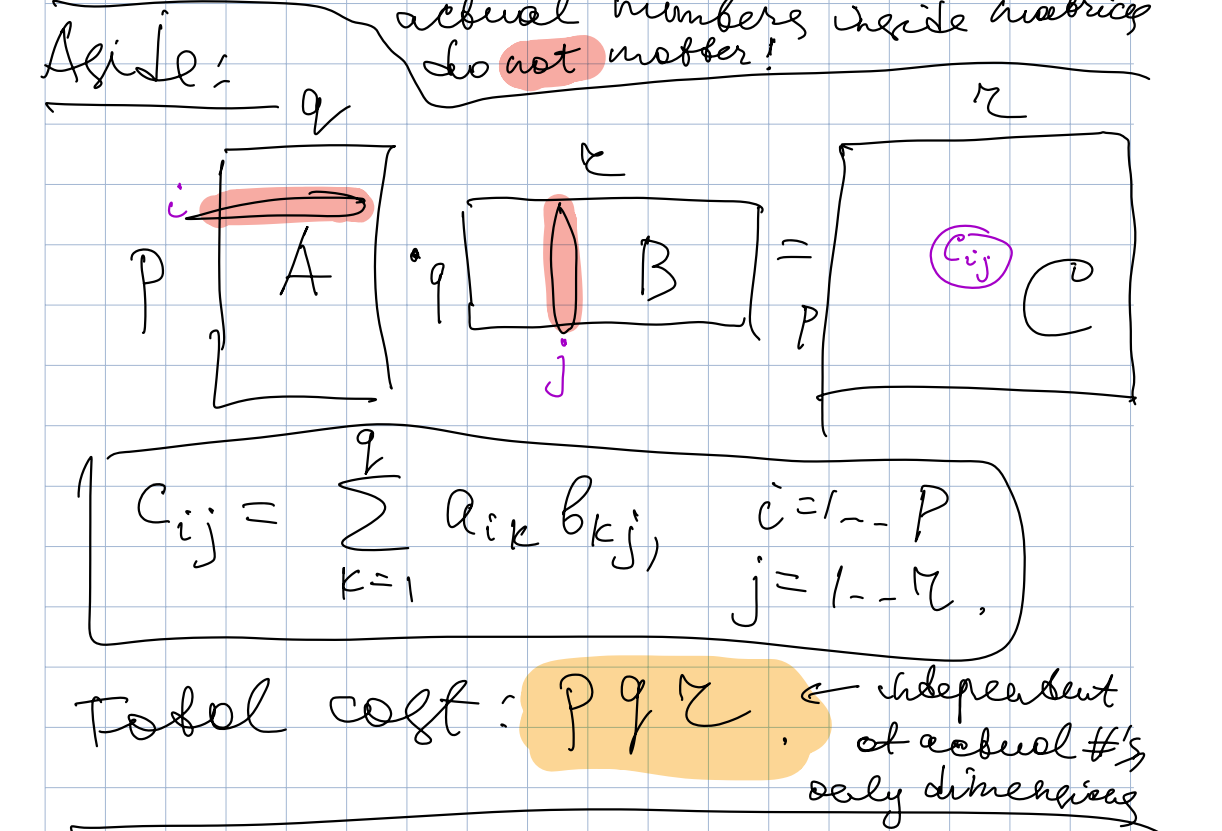 actual numbers inside matrices
Aside:
do not matter!
q
r
r
i
p
A
·
q
B
=
p
Cij
C
j
Cij = ∑ aik bkj, i=1--p
q
k=1
j=1--r.
Total cost: pqr. ← independent
of actual #'s,
only dimensions